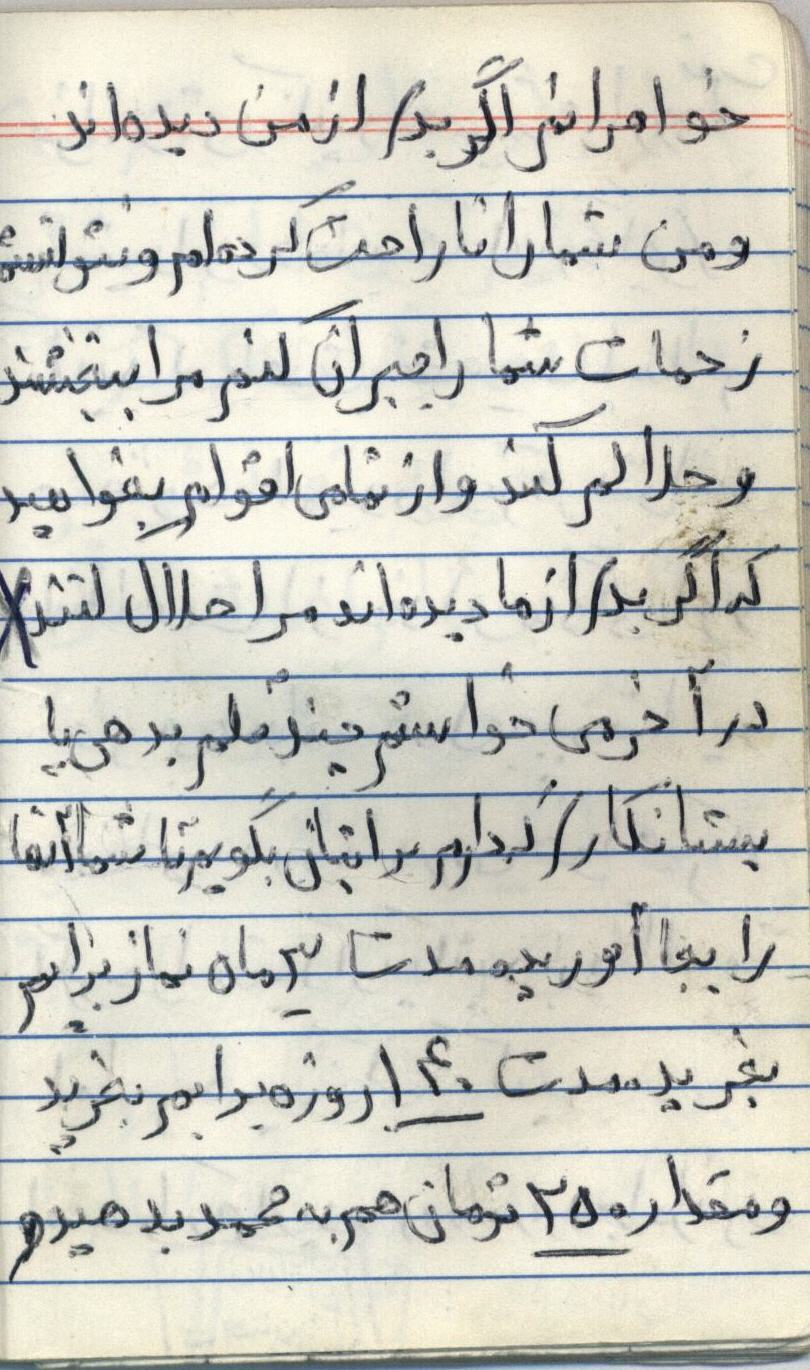 خواهرانم اگر بدی از من دیده‌اند
و من شما را ناراحت کرده‌ام و نتوانستم
زحمات شما را جبران کنم مرا ببخشند
و حلالم کنند و از تمامی اقوام بخواهید
که اگر بدی از ما دیده‌اند مرا حلال کنند
در آخر می خواستم چند قلم بدهی یا
بستانکاری که دارم برایتان بگویم تا شما آنها
را بجا آورید مدت ۳ ماه نماز برایم
بخرید مدت ۴۰ روزه برایم بخرید
و مقدار ۲۵۰ تومان هم به محمد بدهید و